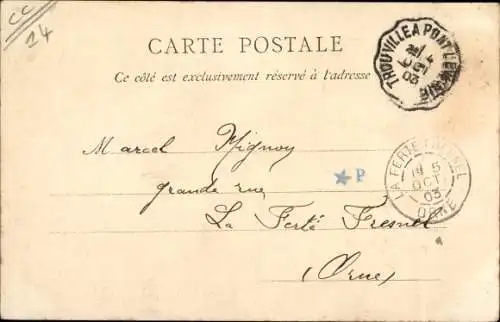 CC
14
CARTE POSTALE
Ce côté est exclusivement réservé à l'adresse
TROUVILLE A PONT-L'EVEQUE
03
Marcel Mignoy
grande rue
P
La Ferté Fresnel
(Orne)
LA FERTE FRESNEL
5
OCT
03
ORNE